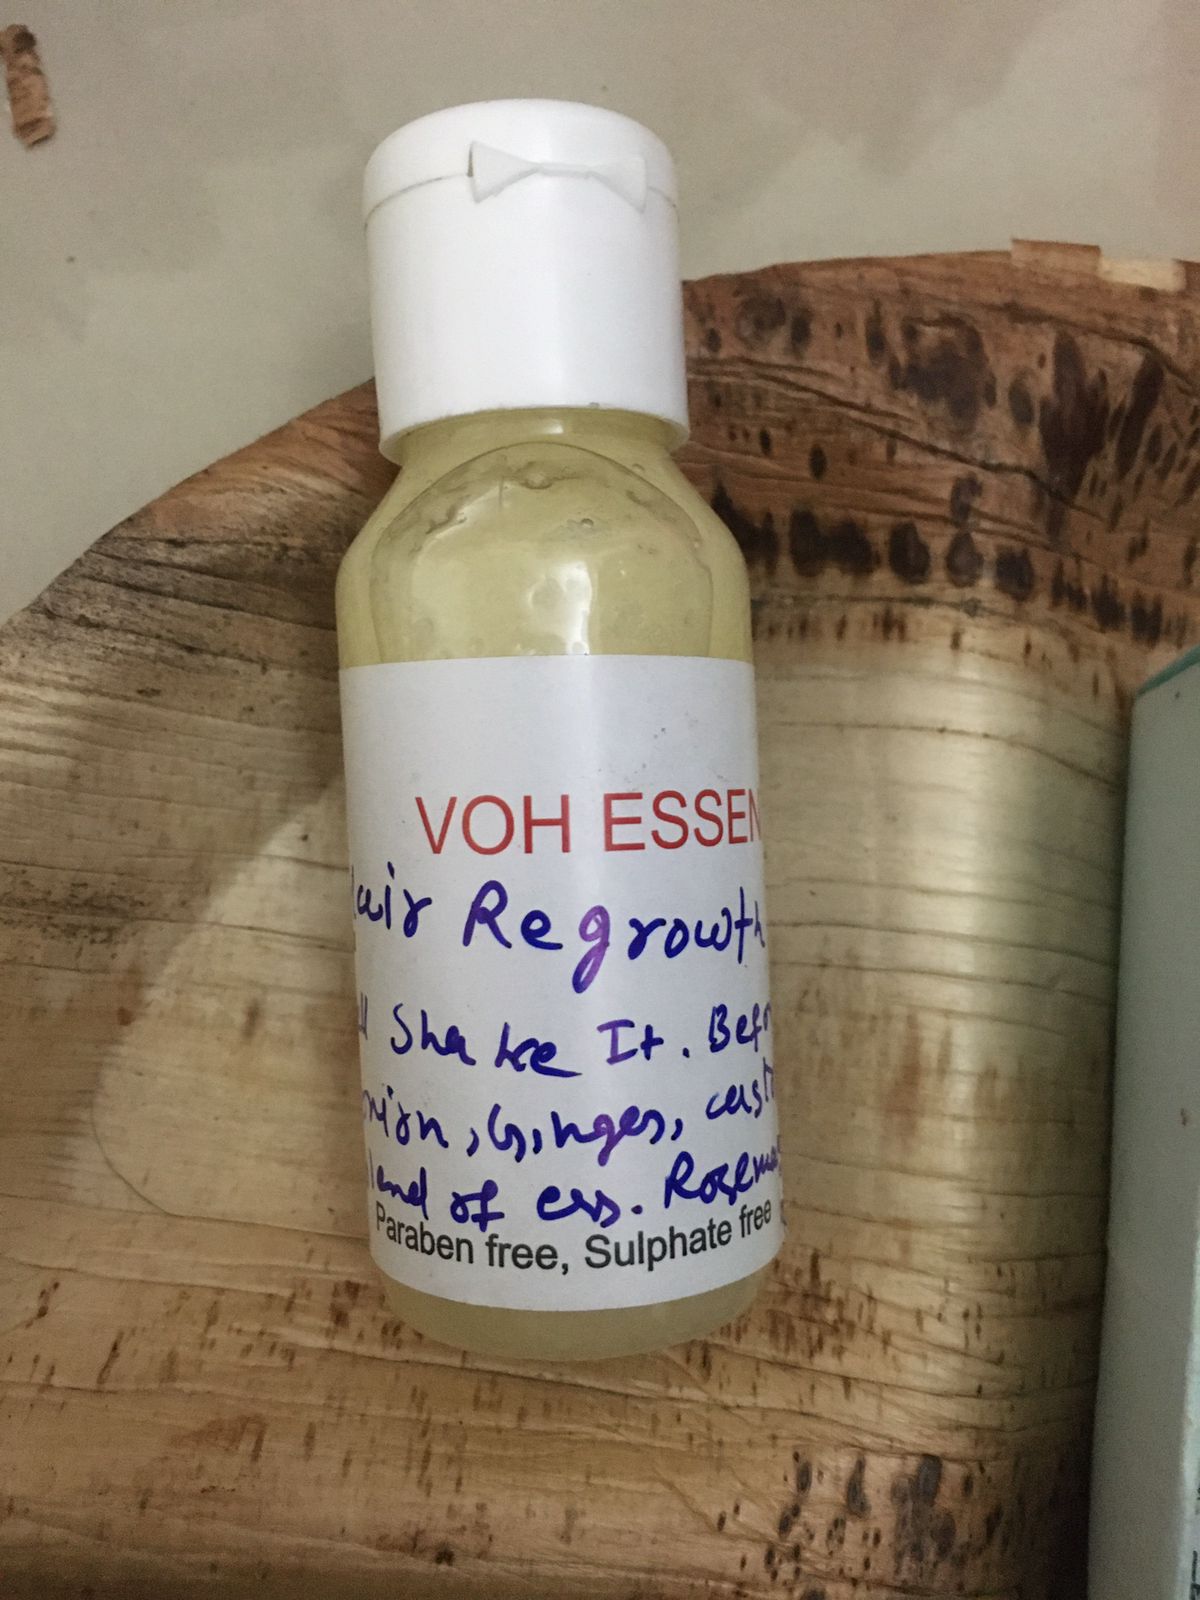 VOH ESSEN
air Regrowth
ll Shake It. Befor
nion, Ginger, cast
lend of ess. Rosema
Paraben free, Sulphate free